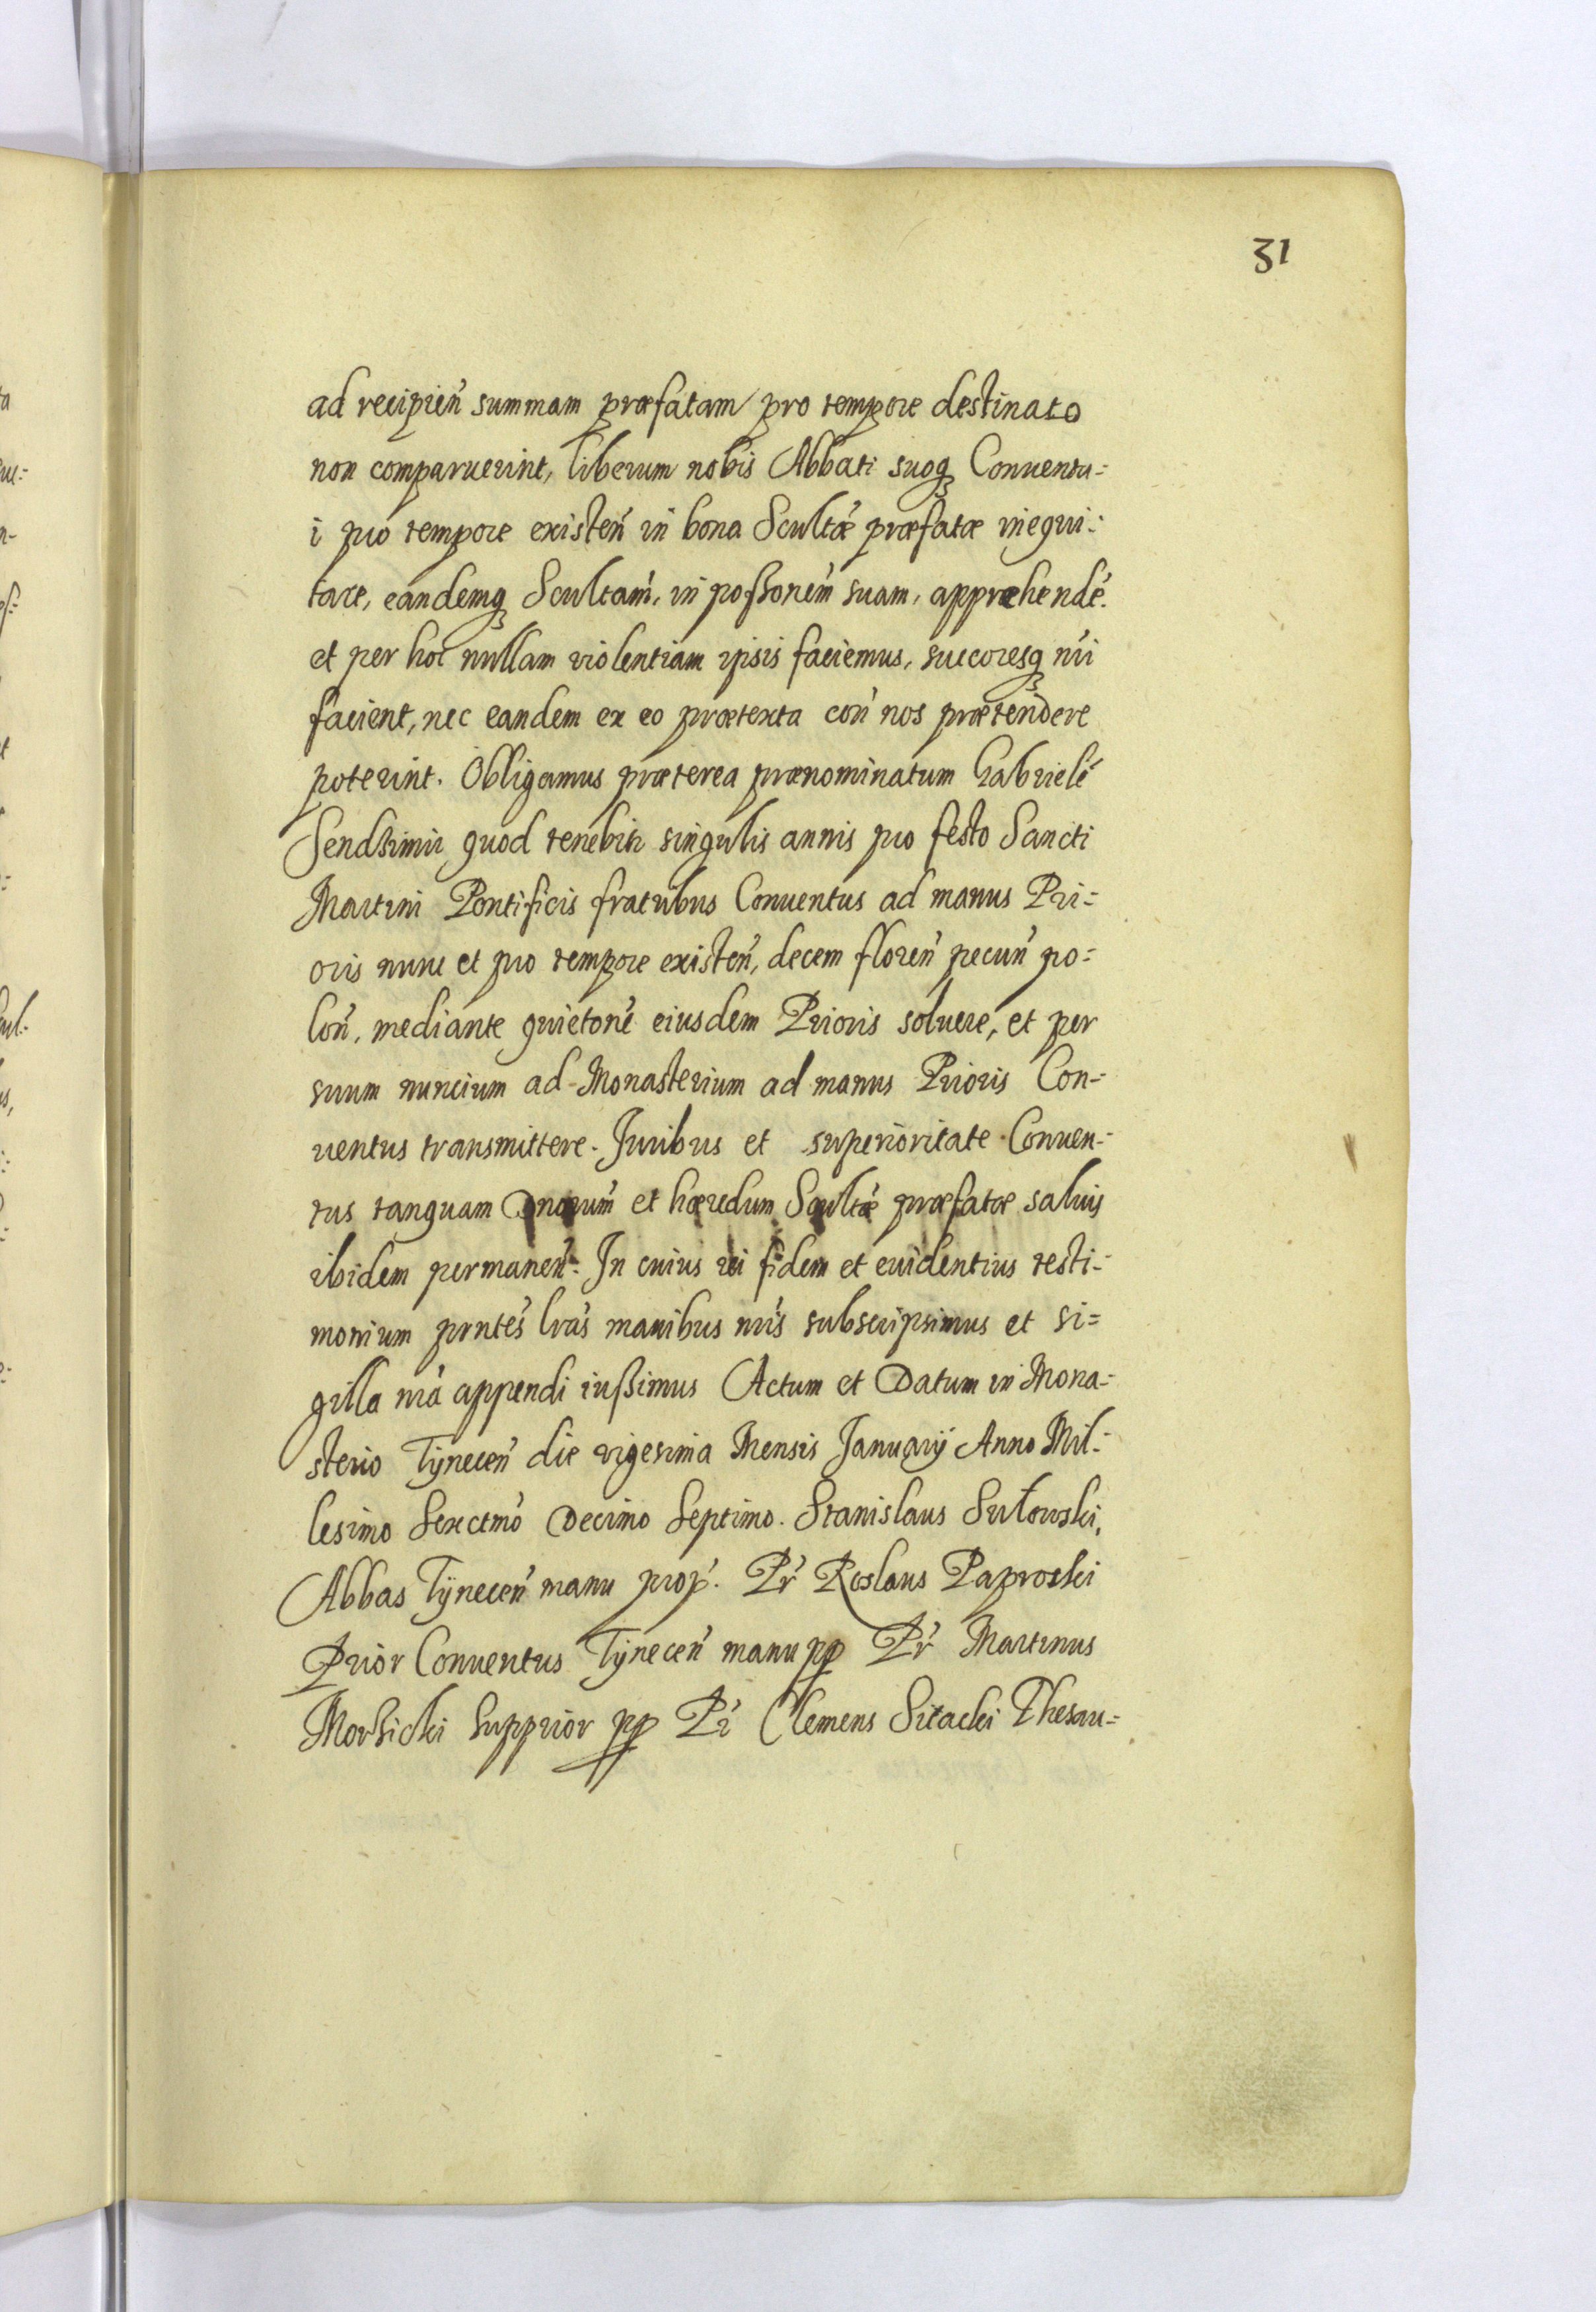 31
ad recipien̄ summam præfatam pro tempore destinato
non comparuerint, liberum nobis Abbati suoq Conuentu=
i pro tempore existen̄ in bona Scultæ præfatæ inequi=
tare, eandemq Scultam̄, in poßonem̄ suam, apprehendē.
et per hoc nullam violentiam ipsis faciemus, succoresq nr̄i
facient, nec eandem ex eo prætexta con̄ nos prætendere
poterint. Obligamus præterea prænominatum Gabrielē
quod tenebitr singulis annis pro festo Sancti
Martini Pontificis fratribus Conuentus ad manus Pri=
oris nunc et pro tempore existen̄, decem floren̄ pecun̄ po=
lon̄, mediante quietonē eiusdem Prioris soluere, et per
suum nuncium ad Monasterium ad manus Prioris Con=
uentus transmittere. Juribus et superioritate Conuen=
tus tanquam Dnorum̄ et hæredum Scultæ præfatæ saluis
ibidem permanen̄. In cuius rei fidem et euidentius testi=
monium prntēs lrās manibus nrīs subscripsimus et si=
gilla nrā appendi iußimus Actum et Datum in Mona=
sterio Tÿnecen̄ die vigesima Mensis Januarÿ Anno Mil=
lesimo Sexctmō Decimo Septimo. Stanislaus Sułowski,
Abbas Tÿnecen̄ manu prop̄. Pr̄ Roslaus Paproski
Prior Conuentus Tÿnecen̄ manu pp Pr̄ Martinus
Morski Supprior pp Pr̄ Clemens Sitacki Thesau=